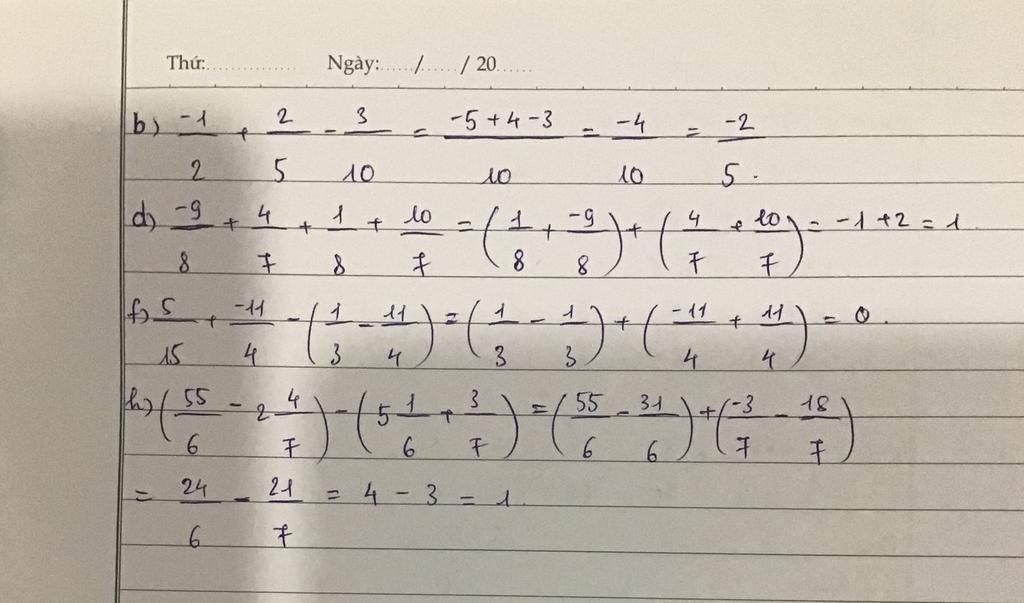 Thứ:............... Ngày:....../....../ 20......
b) -1/2 + 2/5 - 3/10 = (-5+4-3)/10 = -4/10 = -2/5.
d) -9/8 + 4/7 + 1/8 + 10/7 = (1/8 + -9/8) + (4/7 + 10/7) = -1+2 = 1.
f) 5/15 + -11/4 - (1/3 - 11/4) = (1/3 - 1/3) + (-11/4 + 11/4) = 0.
h) (55/6 - 2 4/7) - (5 1/6 + 3/7) = (55/6 - 31/6) + (-3/7 - 18/7)
= 24/6 - 21/7 = 4 - 3 = 1.